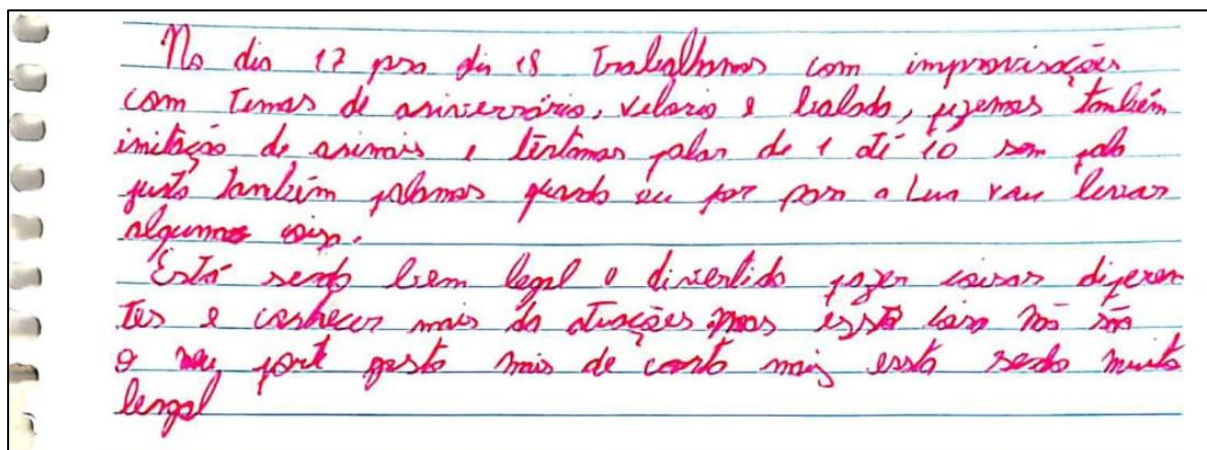 No dia 17 pra dia 18 Trabalhamos com improvisações
com Temas de aniversário, velorio e balada, fizemos também
imitação de animais e tentamos falar de 1 até 10 sem fala
junto também falamos quando eu for para a Lua vou levar
algumas coisa.
Está sendo bem legal e divertido fazer coisas diferen
tes e conhecer mais da atuações mas essa não
o meu forte gosto mais de canto mais essta sendo muito
lengal